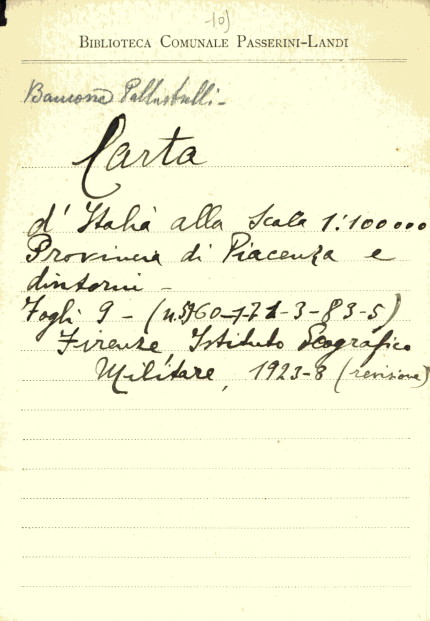 10)
BIBLIOTECA COMUNALE PASSERINI-LANDI
Carta
d' Italia alla Scala 1:100000
Provincia di Piacenza e
dintorni -
Fogli 9 - (n. 5960-71-3-83-5)
Firenze, Istituto Geografico
Militare, 1923-8 (revisione)